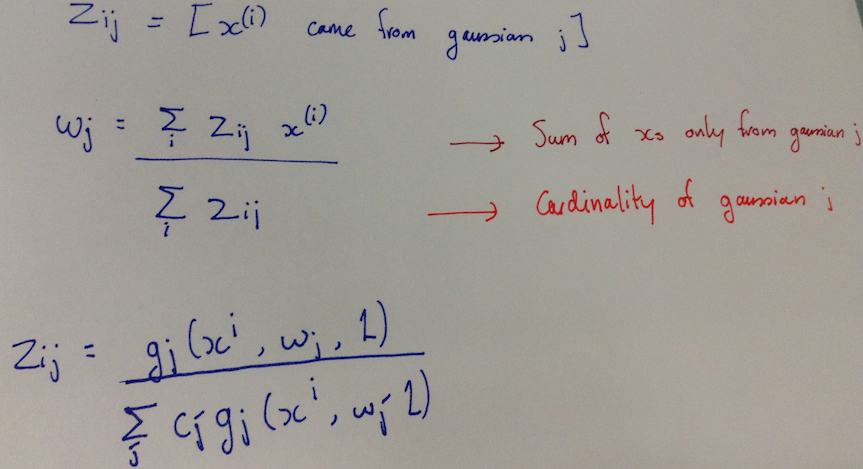 Zij = [x(i) came from gaussian j]
wj = Σi Zij x(i) → Sum of xs only from gaussian j
Σi Zij → Cardinality of gaussian j
Zij = gj(xi, wj, 1)
Σj cj gj(xi, wj 1)